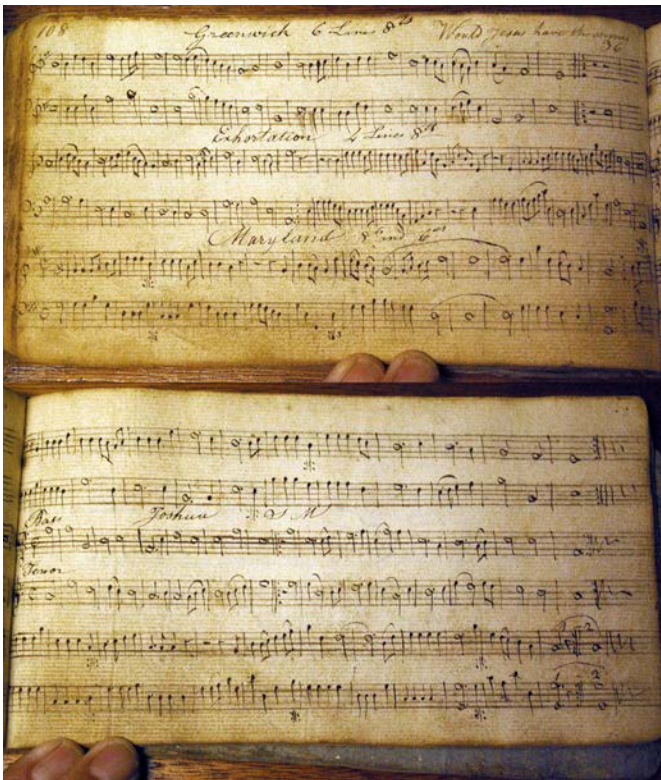 108 Greenwich 6 Lines 8ths Would Jesus have the sinner
36
Exhortation 4 Lines 8ths
Maryland 8s and 6s
Bass Joshua S M
Tenor